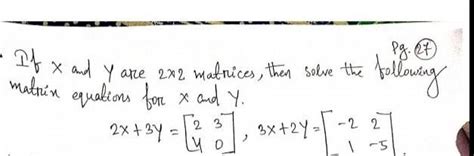 Pg. 27
If x and y are 2x2 matrices, then solve the following
matrix equations for x and y.
2x+3y = [2 3
4 0], 3x+2y = [-2 2
1 -5]